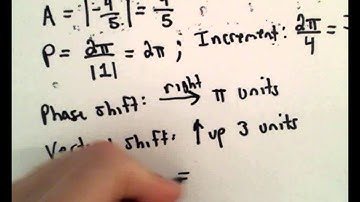 A = |-4/5| = 4/5
P = 2π/|1| = 2π ; Increment: 2π/4 =
Phase shift: right → π units
shift: ↑ up 3 units
=